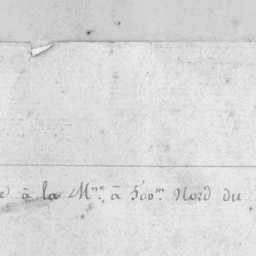 à la Mne. à 500m. Nord du